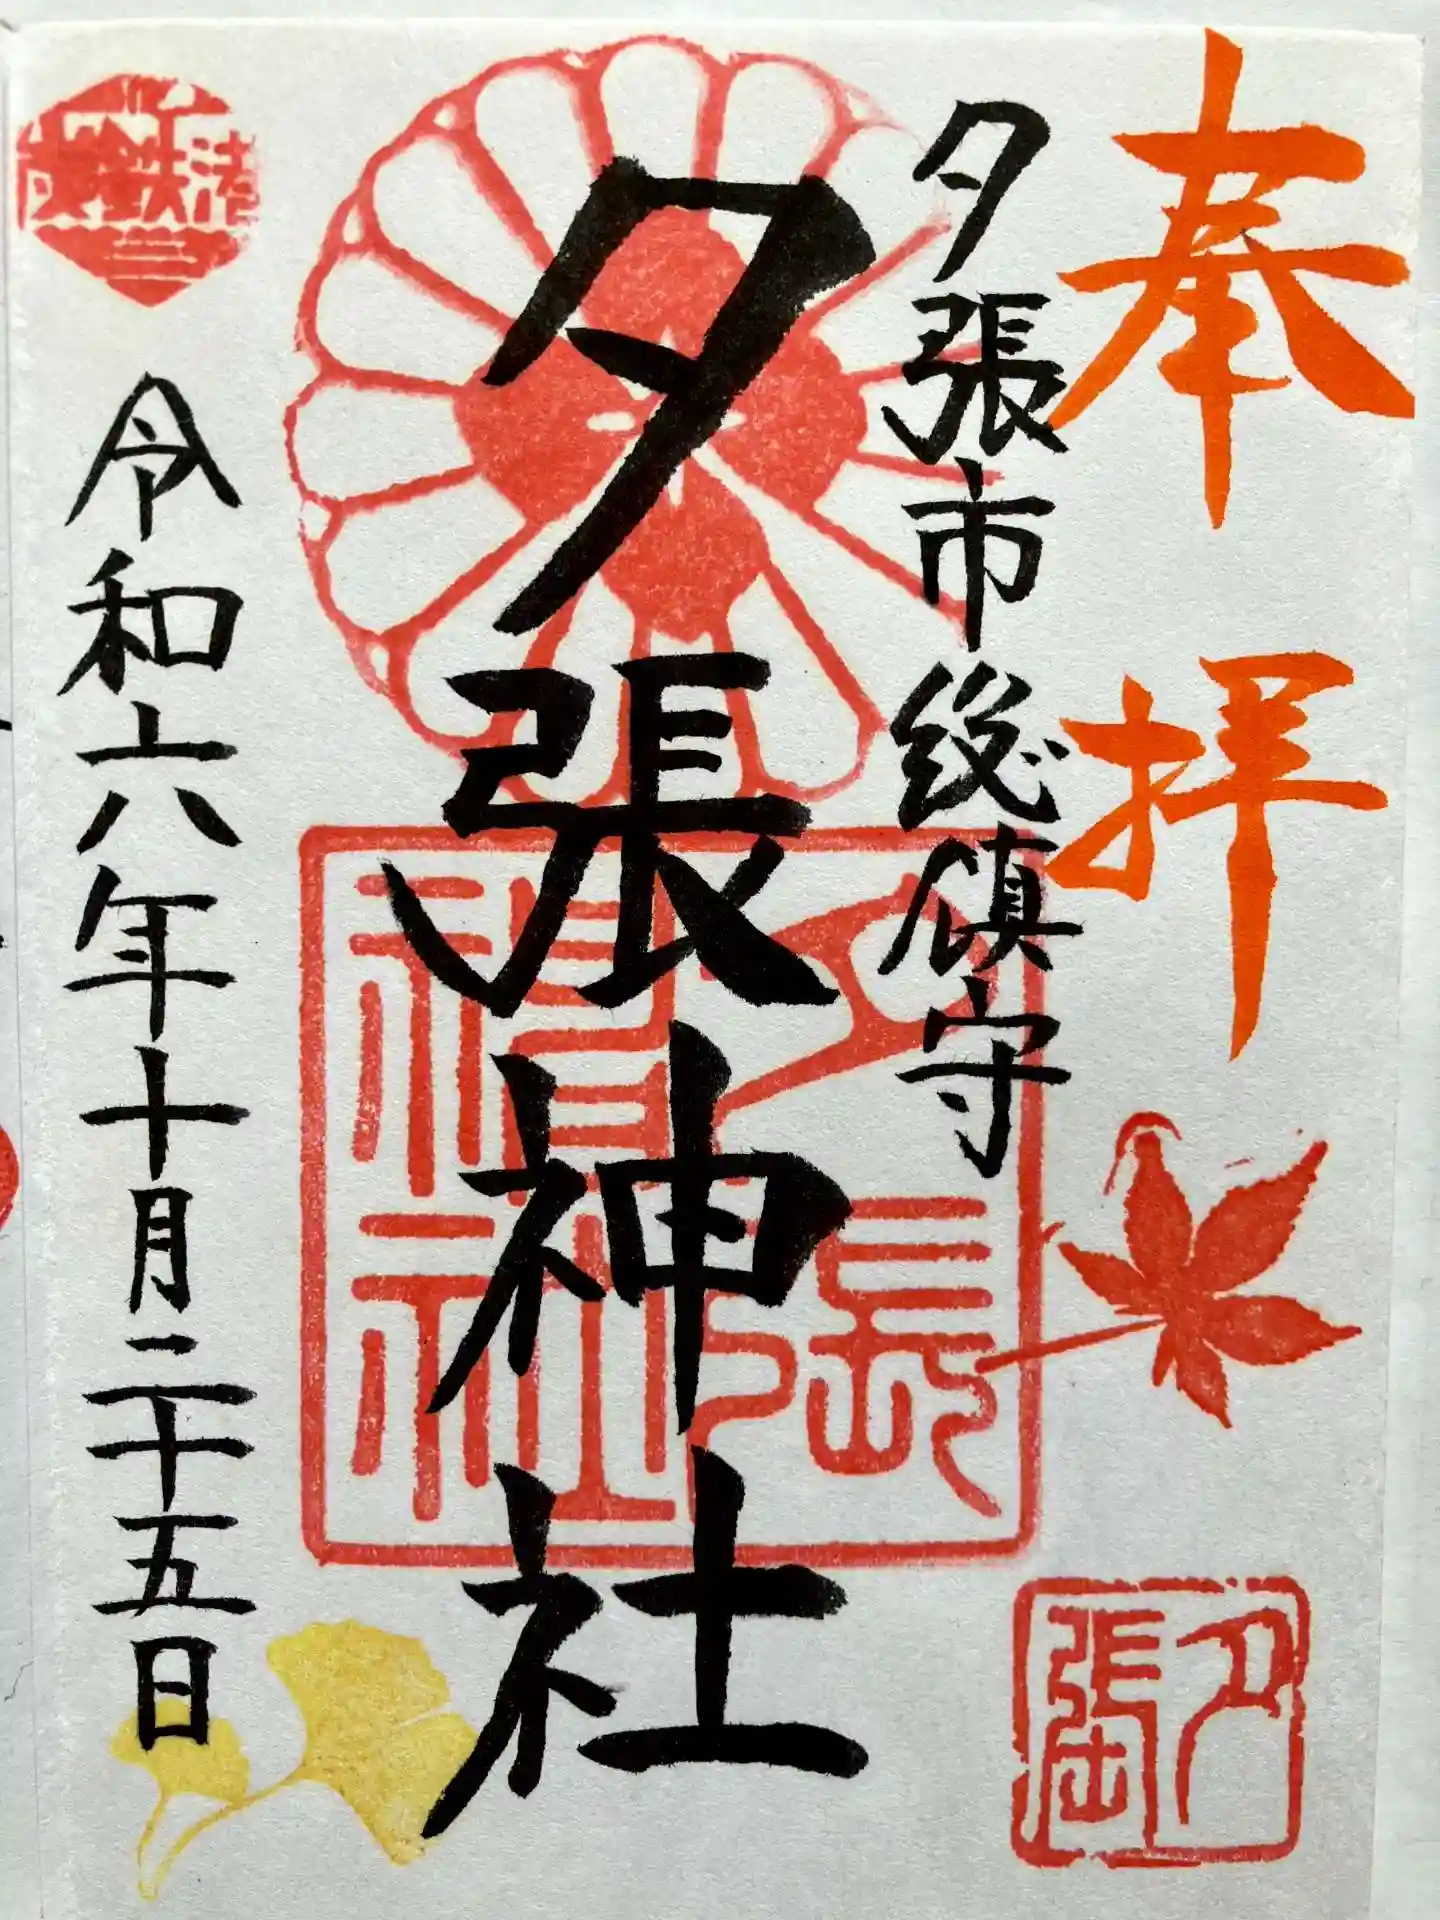 奉拝
夕張市総鎮守
夕張神社
令和六年十月二十五日
炭鉄港
夕張神社
夕張